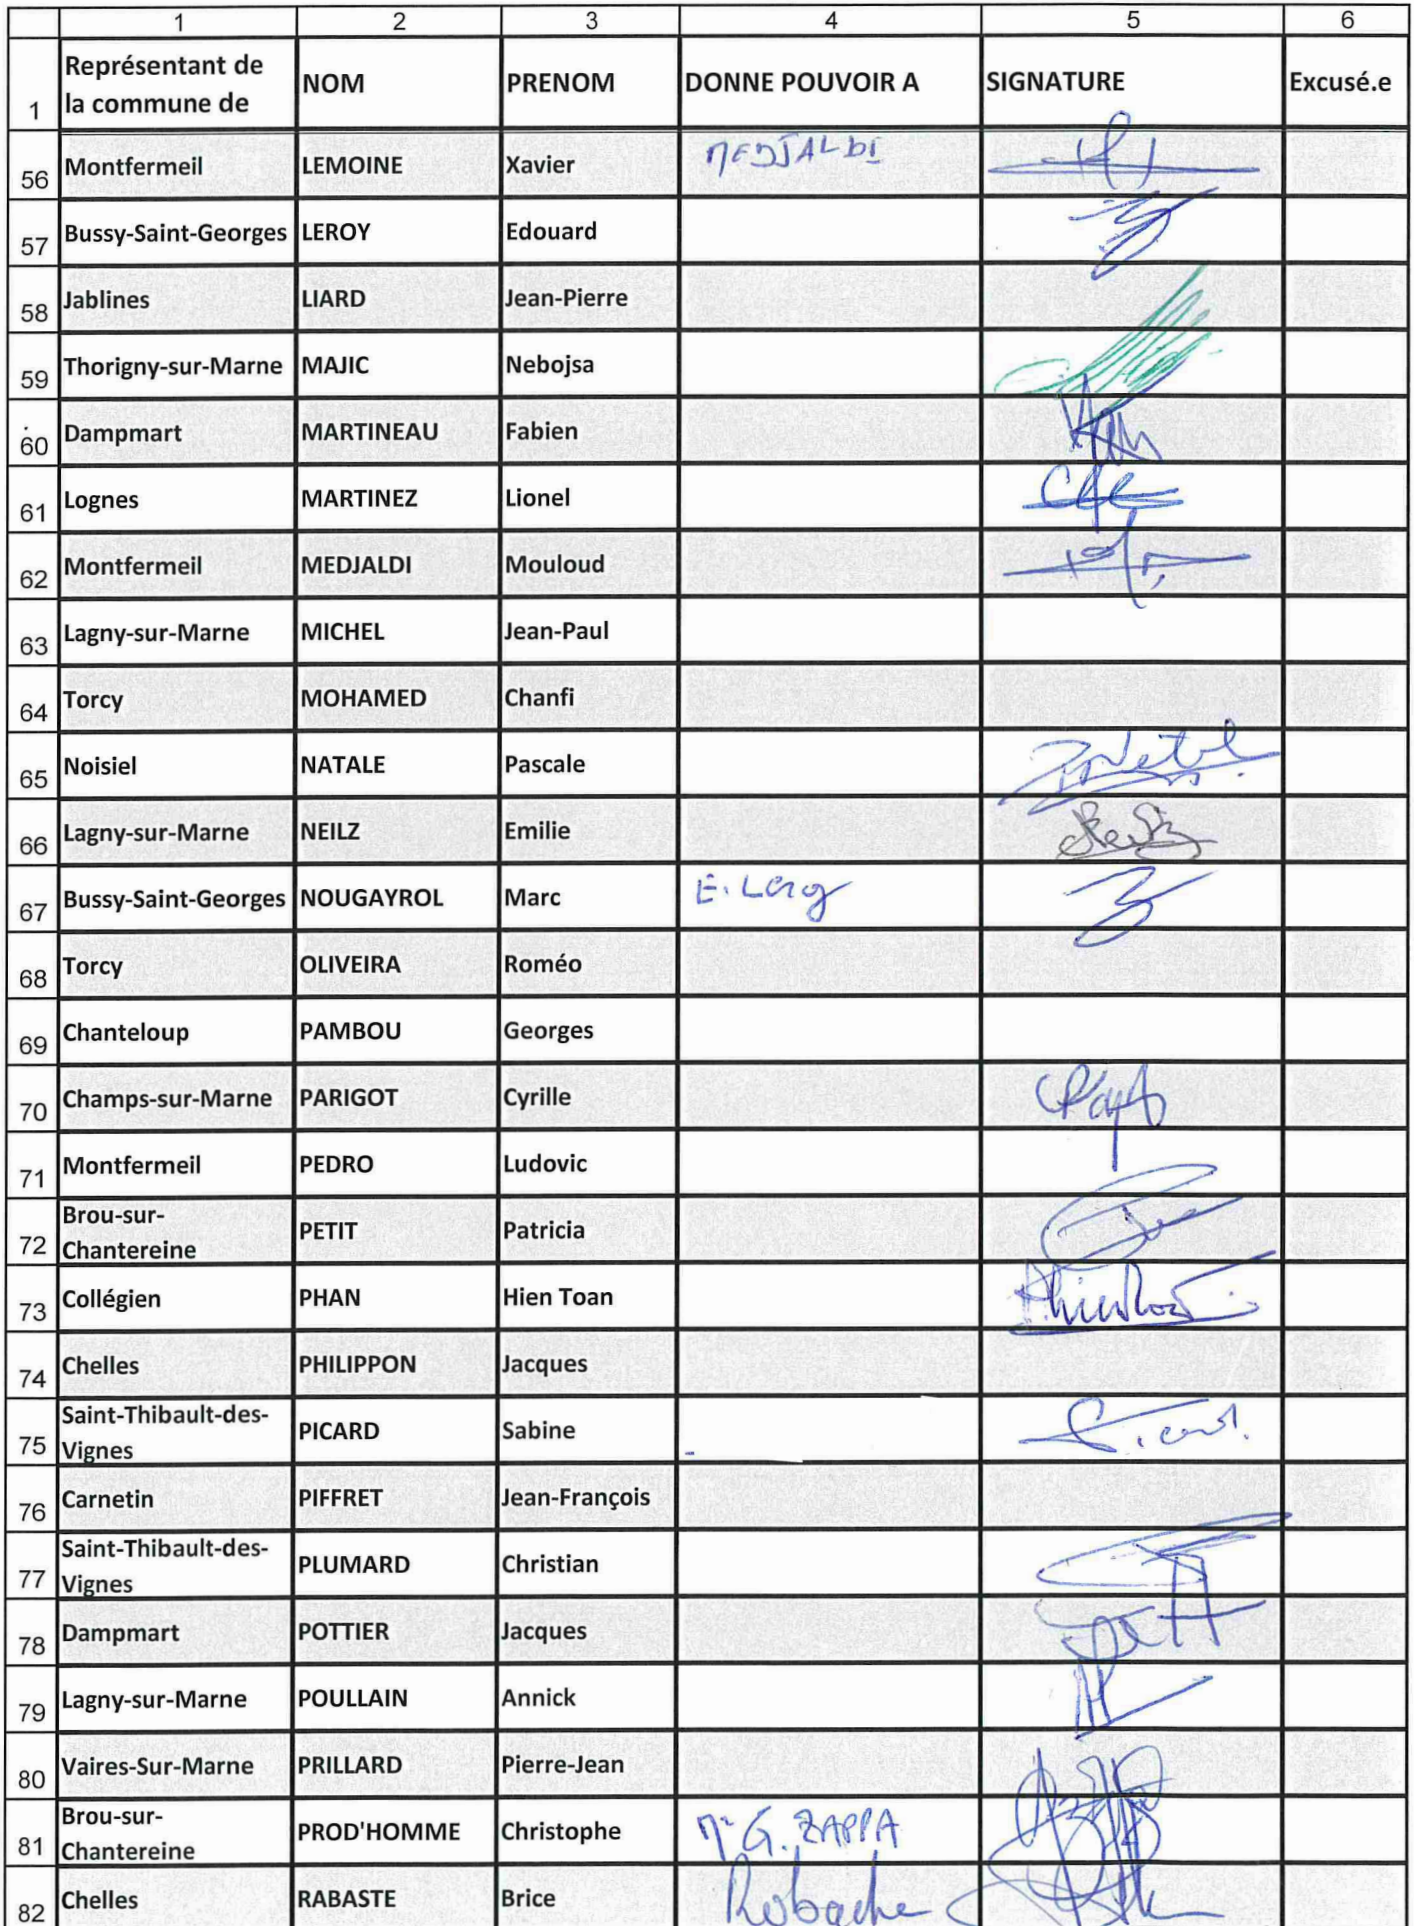 1 2 3 4 5 6
1 Représentant de la commune de NOM PRENOM DONNE POUVOIR A SIGNATURE Excusé.e
56 Montfermeil LEMOINE Xavier MEDJALDI
57 Bussy-Saint-Georges LEROY Edouard
58 Jablines LIARD Jean-Pierre
59 Thorigny-sur-Marne MAJIC Nebojsa
60 Dampmart MARTINEAU Fabien
61 Lognes MARTINEZ Lionel
62 Montfermeil MEDJALDI Mouloud
63 Lagny-sur-Marne MICHEL Jean-Paul
64 Torcy MOHAMED Chanfi
65 Noisiel NATALE Pascale
66 Lagny-sur-Marne NEILZ Emilie
67 Bussy-Saint-Georges NOUGAYROL Marc E. Leroy
68 Torcy OLIVEIRA Roméo
69 Chanteloup PAMBOU Georges
70 Champs-sur-Marne PARIGOT Cyrille
71 Montfermeil PEDRO Ludovic
72 Brou-sur-Chantereine PETIT Patricia
73 Collégien PHAN Hien Toan
74 Chelles PHILIPPON Jacques
75 Saint-Thibault-des-Vignes PICARD Sabine
76 Carnetin PIFFRET Jean-François
77 Saint-Thibault-des-Vignes PLUMARD Christian
78 Dampmart POTTIER Jacques
79 Lagny-sur-Marne POULLAIN Annick
80 Vaires-Sur-Marne PRILLARD Pierre-Jean
81 Brou-sur-Chantereine PROD'HOMME Christophe G. ZAPPA
82 Chelles RABASTE Brice Rabache